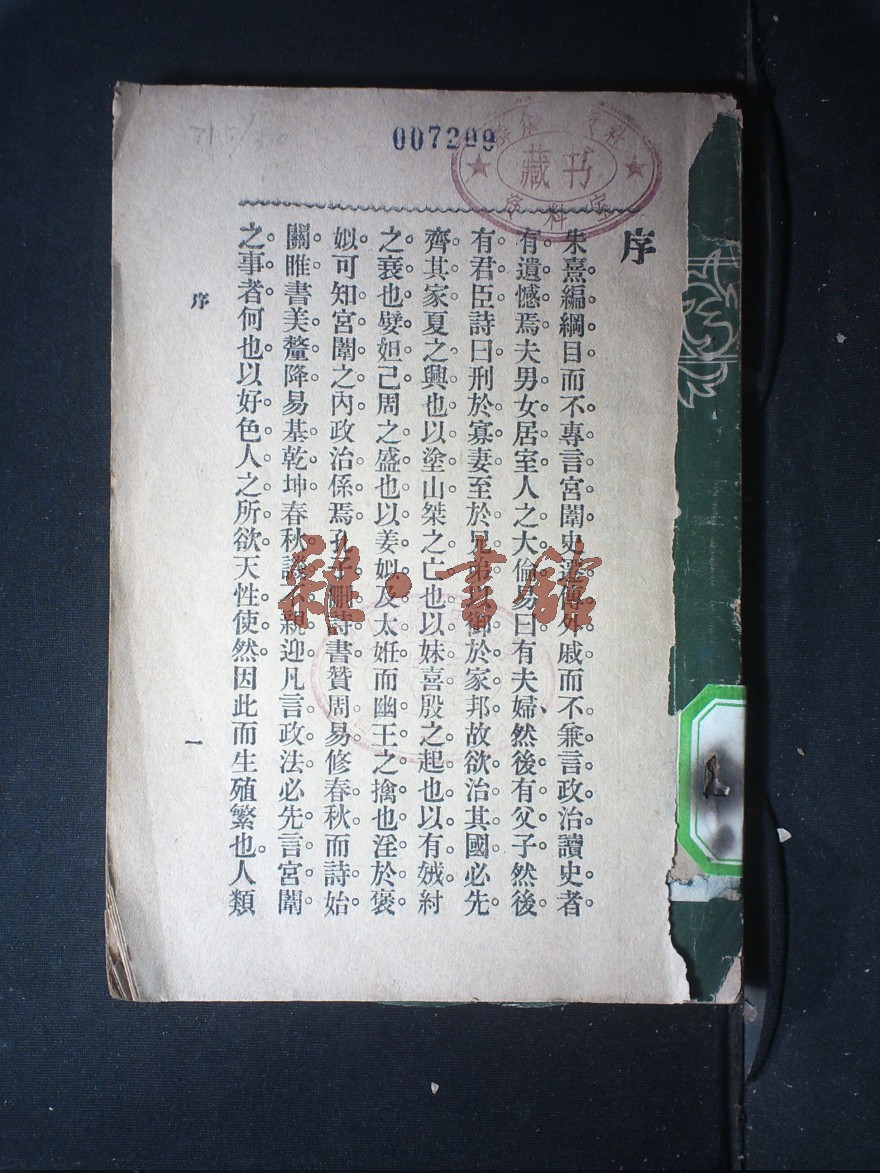 007299
藏书
序
朱熹編綱目而不專言宮闈史遷傳外戚而不兼言政治讀史者
有遺憾焉夫男女居室人之大倫易曰有夫婦然後有父子然後
有君臣詩曰刑於寡妻至於兄弟以御於家邦故欲治其國必先
齊其家夏之興也以塗山桀之亡也以妹喜殷之起也以有娀紂
之衰也嬖妲己周之盛也以姜姒及太姙而幽王之擒也淫於褒
姒可知宮闈之內政治係焉孔子刪詩書贊周易修春秋而詩始
關雎書美釐降易基乾坤春秋譏不親迎凡言政法必先言宮闈
之事者何也以好色人之所欲天性使然因此而生殖繁也人類
序
一
雜·書館